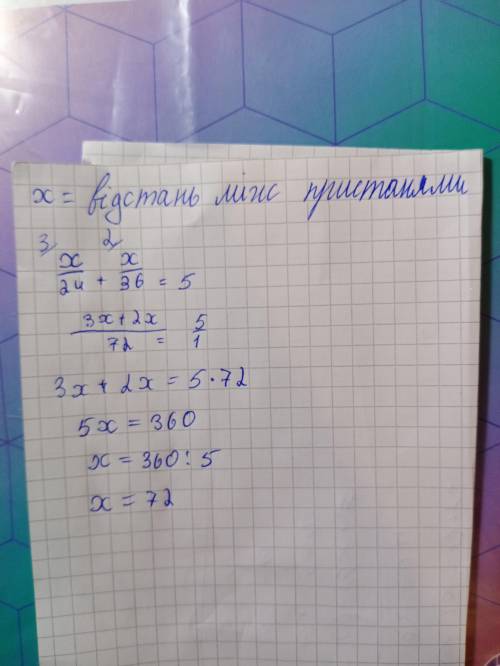 x = відстань між пристанями
3/ 2/
x/24 + x/36 = 5
3x+2x/72 = 5/1
3x + 2x = 5·72
5x = 360
x = 360 : 5
x = 72